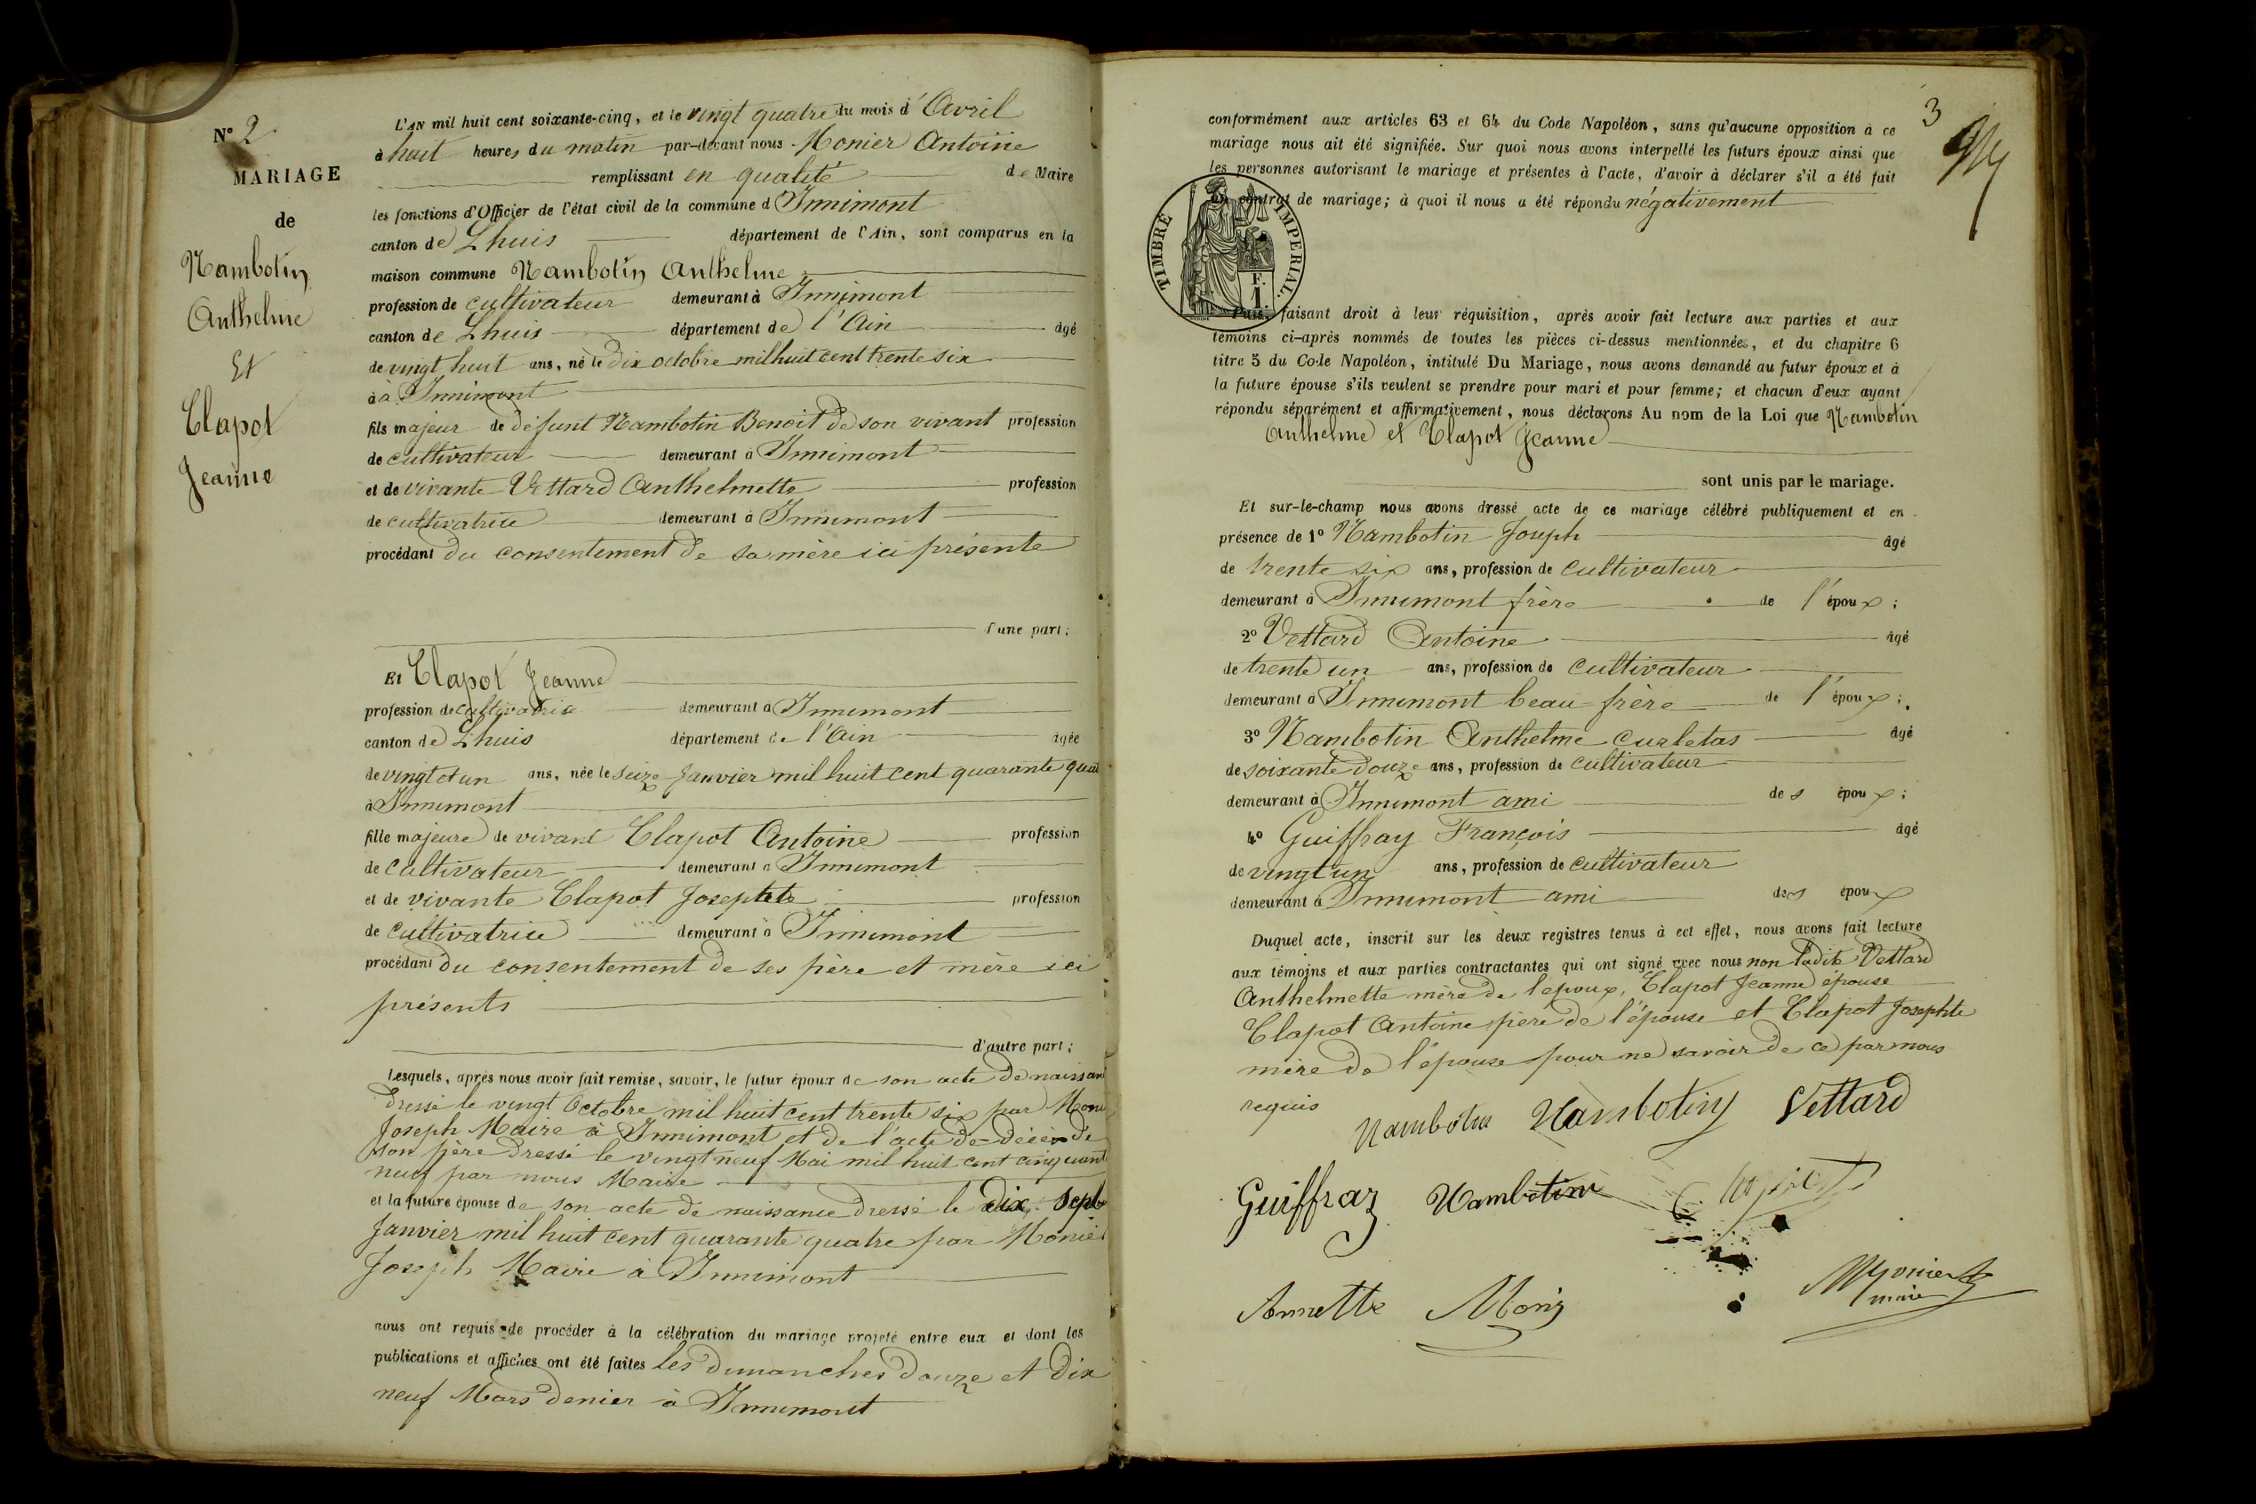 N° 2
MARIAGE
de
Nambotin
Anthelme
Et
Clapot
Jeanne
L'AN mil huit cent soixante-cinq, et le vingt quatre du mois d'Avril
à huit heures du matin par-devant nous Monier Antoine
remplissant en qualité de Maire
les fonctions d'Officier de l'état civil de la commune d Innimont
canton de Lhuis département de l'Ain, sont comparus en la
maison commune Nambotin Anthelme
profession de cultivateur demeurant à Innimont
canton de Lhuis département de l'Ain âgé
de vingt huit ans, né le dix octobre mil huit cent trente six
à à Innimont
fils majeur de défunt Nambotin Benoit de son vivant profession
de cultivateur demeurant à Innimont
et de vivante Vettard Anthelmette profession
de cultivatrice demeurant à Innimont
procédant du consentement de sa mère ici présente
d'une part;
Et Clapot Jeanne
profession de cultivatrice demeurant à Innimont
canton de Lhuis département de l'Ain âgée
de vingt et un ans, née le seize Janvier mil huit cent quarante quat
à Innimont
fille majeure de vivant Clapot Antoine profession
de cultivateur demeurant à Innimont
et de vivante Clapot Josephte profession
de cultivatrice demeurant à Innimont
procédant du consentement de ses père et mère ici
présents
d'autre part;
Lesquels, après nous avoir fait remise, savoir, le futur époux de son acte de naissan
dressé le vingt Octobre mil huit cent trente six par Moni
Joseph Maire à Innimont et de l'acte de décès de
son père dressé le vingt neuf Mai mil huit cent cinquant
neuf par nous Maire
et la future épouse de son acte de naissance dressé le dix sept
Janvier mil huit cent quarante quatre par Monier
Joseph Maire à Innimont
nous ont requis de procéder à la célébration du mariage projeté entre eux et dont les
publications et affiches ont été faites les dimanches douze et dix
neuf Mars denier à Innimont
3
conformément aux articles 63 et 64 du Code Napoléon, sans qu'aucune opposition à ce
mariage nous ait été signifiée. Sur quoi nous avons interpellé les futurs époux ainsi que
les personnes autorisant le mariage et présentes à l'acte, d'avoir à déclarer s'il a été fait
un contrat de mariage; à quoi il nous a été répondu négativement
TIMBRE IMPERIAL.
F.
1.
Puis, faisant droit à leur réquisition, après avoir fait lecture aux parties et aux
témoins ci-après nommés de toutes les pièces ci-dessus mentionnées, et du chapitre 6
titre 5 du Code Napoléon, intitulé Du Mariage, nous avons demandé au futur époux et à
la future épouse s'ils veulent se prendre pour mari et pour femme; et chacun d'eux ayant
répondu séparément et affirmativement, nous déclarons Au nom de la Loi que Nambotin
Anthelme et Clapot Jeanne
sont unis par le mariage.
Et sur-le-champ nous avons dressé acte de ce mariage célébré publiquement et en
présence de 1° Nambotin Joseph âgé
de trente six ans, profession de cultivateur
demeurant à Innimont frère de l'époux;
2° Vettard Antoine âgé
de trente un ans, profession de cultivateur
demeurant à Innimont beau frère de l'époux;
3° Nambotin Anthelme curletas âgé
de soixante douze ans, profession de cultivateur
demeurant à Innimont ami des époux;
4° Guiffray François âgé
de vingt un ans, profession de cultivateur
demeurant à Innimont ami des époux
Duquel acte, inscrit sur les deux registres tenus à cet effet, nous avons fait lecture
aux témoins et aux parties contractantes qui ont signé avec nous non ladite Vettard
Anthelmette mère de l'époux, Clapot Jeanne épouse
Clapot Antoine père de l'épouse et Clapot Josephte
mère de l'épouse pour ne savoir de ce par nous
requis
Nambotin Nambotin Vettard
Guiffray Nambotin
Annette Moniz Monier
maire